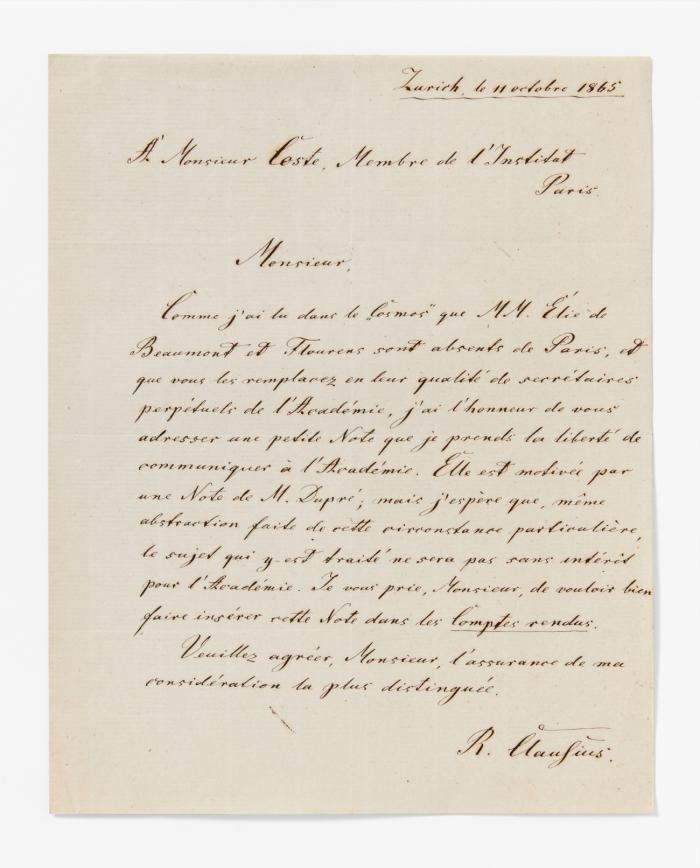 Zurich, le 11 octobre 1865
A Monsieur Coste, Membre de l'Institut
Paris.
Monsieur,
Comme j'ai lu dans le „Cosmos" que MM. Élie de
Beaumont et Flourens sont absents de Paris, et
que vous les remplacez en leur qualité de secrétaires
perpétuels de l'Académie, j'ai l'honneur de vous
adresser une petite Note que je prends la liberté de
communiquer à l'Académie. Elle est motivée par
une Note de M. Dupré; mais j'espère que, même
abstraction faite de cette circonstance particulière,
le sujet qui y est traité ne sera pas sans intérêt
pour l'Académie. Je vous prie, Monsieur, de vouloir bien
faire insérer cette Note dans les Comptes rendus.
Veuillez agréer, Monsieur, l'assurance de ma
considération la plus distinguée.
R. Clausius.